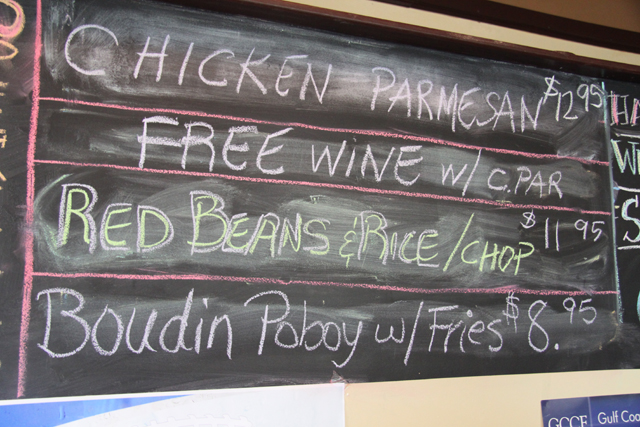 CHICKEN PARMESAN $12.95
FREE WINE w/ C.PAR
RED BEANS & RICE / CHOP $11 95
Boudin Poboy w/ Fries $8.95
HA
W
S
GCCF Gulf Coa